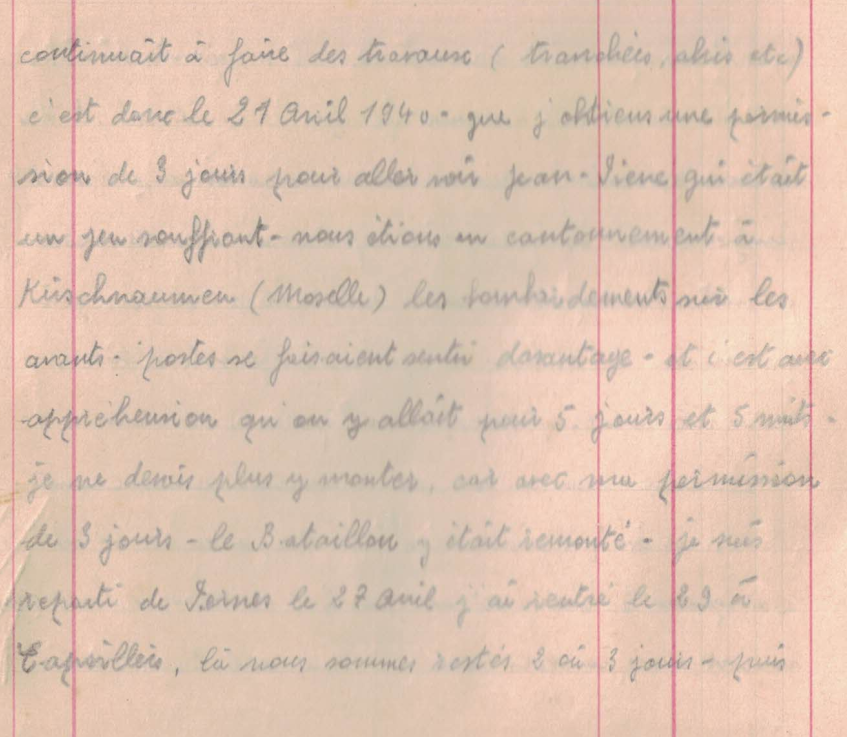 continuait à faire des travaux ( tranchées, abris etc)
c'est donc le 21 Avril 1940 - que j'obtiens une permis-
sion de 3 jours pour aller voir Jean-Pierre qui était
un peu souffrant - nous étions en cantonnement à
Kirschnaumen (Moselle) les bombardements sur les
avants-postes se faisaient sentir davantage - et c'est avec
appréhension qu'on y allait pour 5 jours et 5 nuits -
je ne devais plus y monter, car avec ma permission
de 3 jours - le Bataillon y était remonté - je suis
reparti de Pernes le 27 Avril j'ai rentré le 29 à
là nous sommes restés 2 où 3 jours - puis